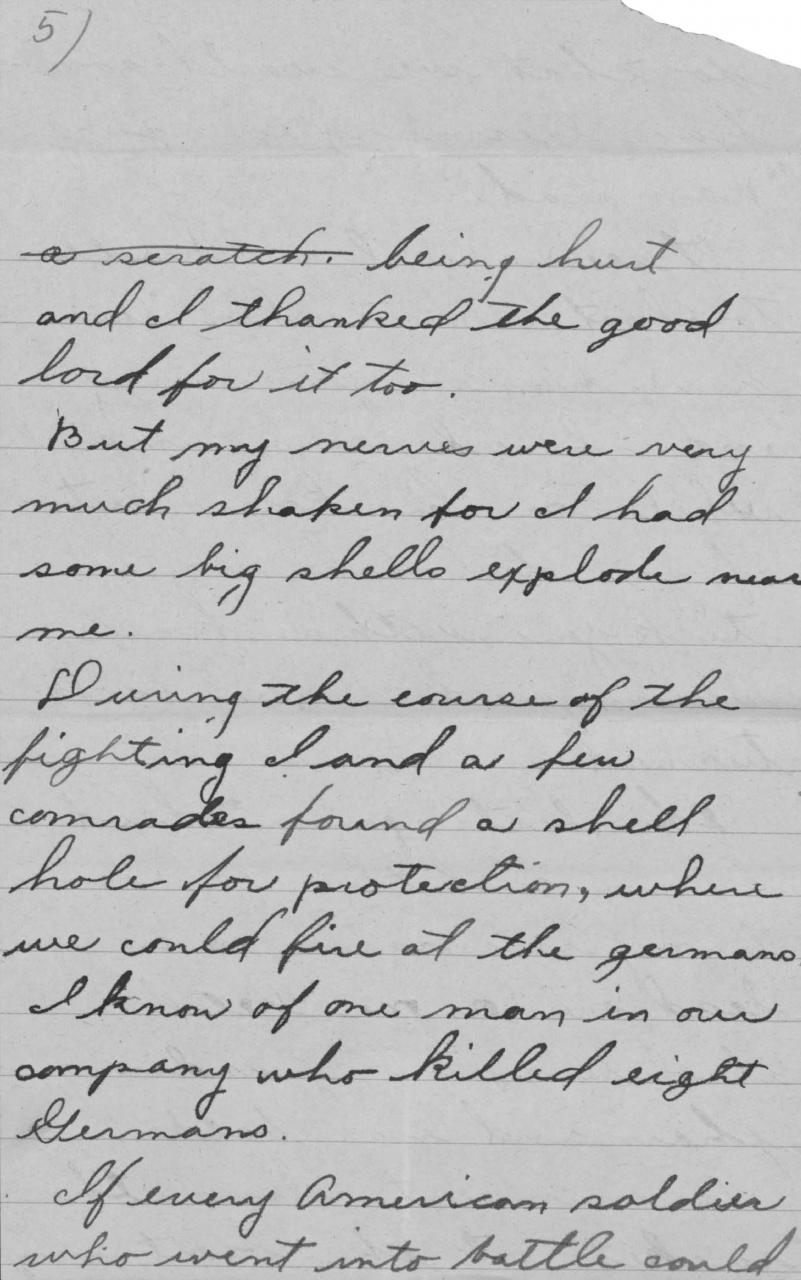 5)
a scratch. being hurt
and I thanked the good
lord for it too.
But my nerves were very
much shaken for I had
some big shells explode near
me.
During the course of the
fighting I and a few
comrades found a shell
hole for protection, where
we could fire at the germans.
I know of one man in our
company who killed eight
Germans.
If every American soldier
who went into battle could